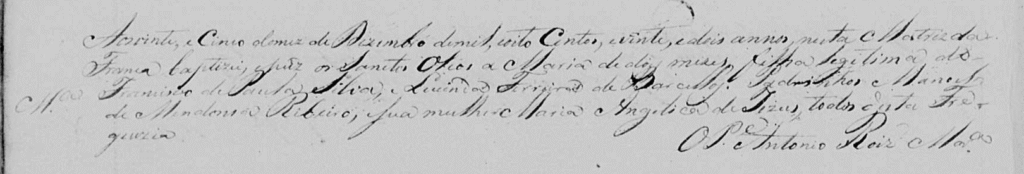 Aos vinte, e Cinco do mez de Dizembro de mil, oito Centos, e vinte, e dois annos, nesta Matriz da
Franca baptizei, e puz os Sanctos Oleos a Maria de dois mezes, filha legitima de
M.ª Francisco de Paula Silva, e Ferreira de Barcellos. Padrinhos Manoel
de Mendonsa Ribeiro, e sua mulher Maria Angelica de Jezus, todos desta Fre-
guezia.
O P. Antonio Roiz